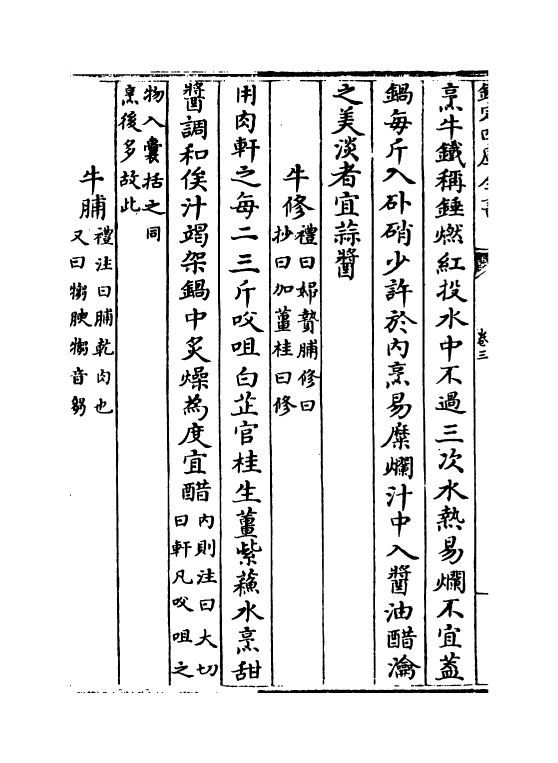 欽定四庫全書
卷三
烹牛鐵稱錘燃紅投水中不過三次水熱易爛不宜蓋
鍋每斤入朴硝少許於內烹易糜爛汁中入醬油醋瀹
之美淡者宜蒜醬
牛修禮曰婦贄脯修曰
抄曰加薑桂曰修
用肉軒之每二三斤㕮咀白芷官桂生薑紫蘓水烹甜
醬調和俟汁竭架鍋中炙燥為度宜醋內則注曰大切
曰軒凡㕮咀之
物入囊括之同
烹後多故此
牛脯禮注曰脯乾肉也
又曰